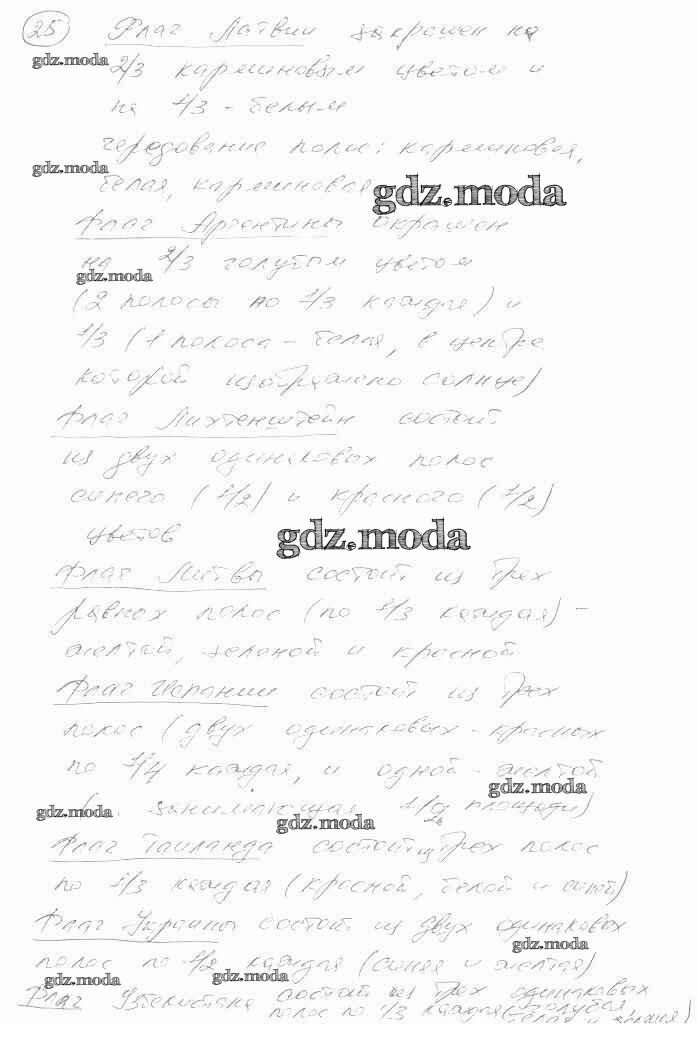 25 Флаг Латвии закрашен на
gdz.moda
2/3 карминовым цветом и
на 1/3 - белым
чередование полос: карминовая,
gdz.moda
белая, карминовая
gdz.moda
Флаг Аргентины окрашен
на 2/3 голубым цветом
gdz.moda
(2 полосы по 1/3 каждая) и
1/3 (1 полоса - белая, в центре
которой изображено солнце)
Флаг Лихтенштейн состоит
из двух одинаковых полос
синего (1/2) и красного (1/2)
цветов
gdz.moda
Флаг Литвы состоит из трех
равных полос (по 1/3 каждая) -
желтой, зеленой и красной
Флаг Испании состоит из трех
полос (двух одинаковых - красных
по 1/4 каждая, и одной - желтой
gdz.moda
занимающая 1/2 площади)
gdz.moda
gdz.moda
Флаг Таиланда состоит из трех полос
по 1/3 каждая (красной, белой и синей)
Флаг Украины состоит из двух одинаковых
gdz.moda
полос по 1/2 каждая (синяя и желтая)
gdz.moda
gdz.moda
Флаг Узбекистана состоит из трех одинаковых
полос по 1/3 каждая (голубая,
белая и зеленая)